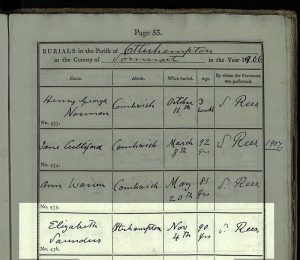 Page 55.
BURIALS in the Parish of Otterhampton
in the County of Somerset in the Year 1906
Name. Abode. When buried. Age. By whom the Ceremony was performed.
Henry George Norman Combwich October 11th 3 weeks S Rees
No. 433.
Jane Combwich March 8th 92 yrs S Rees 1907
No. 434.
Ann Warren Combwich May 20th 81 yrs S Rees
No. 435.
Elizabeth Saunders Otterhampton Nov 4th 90 yrs S Rees
No. 436.